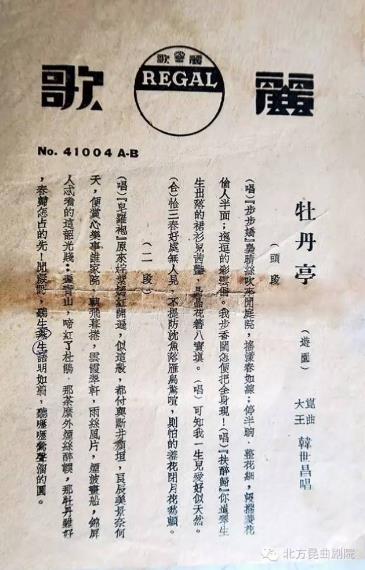 麗歌
麗歌
REGAL
No. 41004 A-B
牡丹亭 (遊園) 崑曲大王 韓世昌唱
(頭段)
(唱)『步步嬌』裊晴絲吹來閒庭院，搖漾春如線；停半晌，整花鈿，沒揣菱花
偷人半面；迤逗的彩雲偏。我步香閨怎便把全身現！(唱)『扶醉歸』你道翠生
生出落的裙衫兒茜，艷晶花簪八寶瑱。(唱)可知我一生兒愛好似天然。
(合)恰三春好處無人見，不提防沈魚落雁鳥驚喧，則怕的羞花閉月花愁顫。
(二段)
(唱)『皂羅袍』原來姹紫嫣紅開遍，似這般，都付與斷井頹垣，良辰美景奈何
天，便賞心樂事誰家院，朝飛暮捲，雲霞翠軒，雨絲風片，煙波畫船，錦屏
人忒看的這韶光賤；遍青山，啼紅了杜鵑，那荼蘼外煙絲醉軟，那牡丹雖好
，春歸怎占的先！閒凝眄，生生燕語明如剪，聽嚦嚦鶯聲溜的圓。
北方昆曲剧院